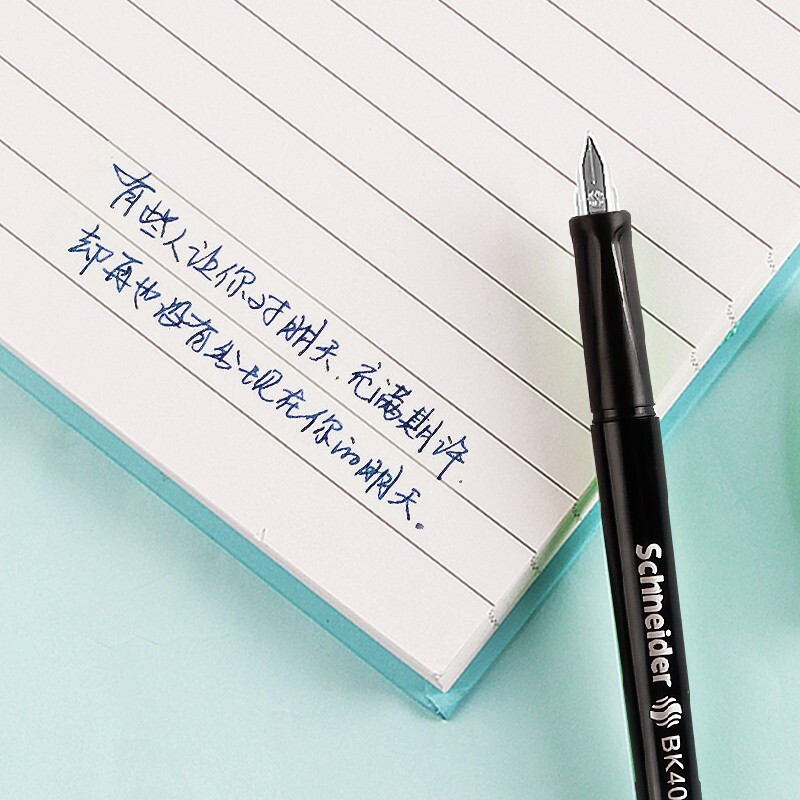 有些人让你对明天.充满期许.
却再也没有出现在你的明天。
Schneider BK40